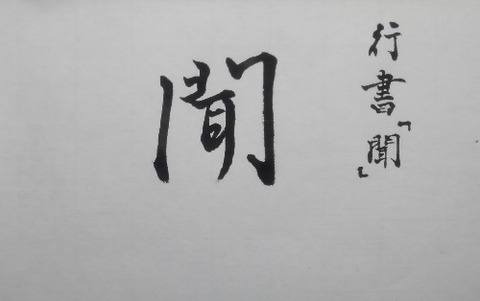 行書「聞」
聞